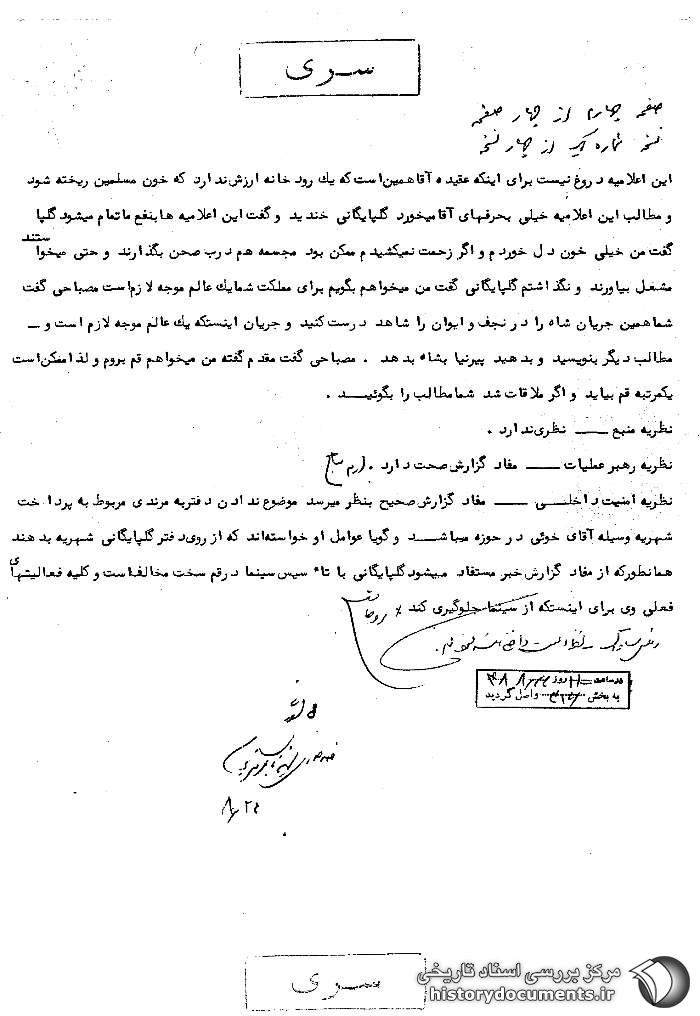 سری
صفحه چهارم از چهار صفحه
نسخه شماره یک از چهار نسخه
این اعلامیه دروغ نیست برای اینکه عقیده آقا همین است که یک رودخانه ارزش ندارد که خون مسلمین ریخته شود
و مطالب این اعلامیه خیلی بحرفهای آقا میخورد گلپایگانی خندید و گفت این اعلامیه ها بنفع ما تمام میشود گلپا
گفت من خیلی خون دل خوردم و اگر زحمت نمیکشیدم ممکن بود مجسمه هم درب صحن بگذارند و حتی میخواستند
مشعل بیاورند و نگذاشتم گلپایگانی گفت من میخواهم بگویم برای مملکت شما یک عالم موجه لازم است مصباحی گفت
شما همین جریان شاه را در نجف و ایوان را شاهد درست کنید و جریان اینستکه یک عالم موجه لازم است و ــ
مطالب دیگر بنویسید و بدهید پیرنیا بشاه بدهد . مصباحی گفت مقدم گفته من میخواهم قم بروم و لذا ممکن است
یکمرتبه قم بیاید و اگر ملاقات شد شما مطالب را بگوئید .
نظریه منبع ــ نظری ندارد .
نظریه رهبر عملیات ــ مفاد گزارش صحت دارد .
نظریه امنیت داخلی ــ مفاد گزارش صحیح بنظر میرسد موضوع ندادن دفتر به مرندی مربوط به پرداخت
شهریه وسیله آقای خوئی در حوزه میباشد و گویا عوامل او خواسته‌اند که از روی دفتر گلپایگانی شهریه بدهند
همانطورکه از مفاد گزارش خبر مستفاد میشود گلپایگانی با تاء سیس سینما در قم سخت مخالف است و کلیه فعالیتهای
فعلی وی برای اینستکه از سینما جلوگیری کند
در ساعت روز
به بخش واصل گردید
۸/۲۴
سری
مرکز بررسی اسناد تاریخی
historydocuments.ir